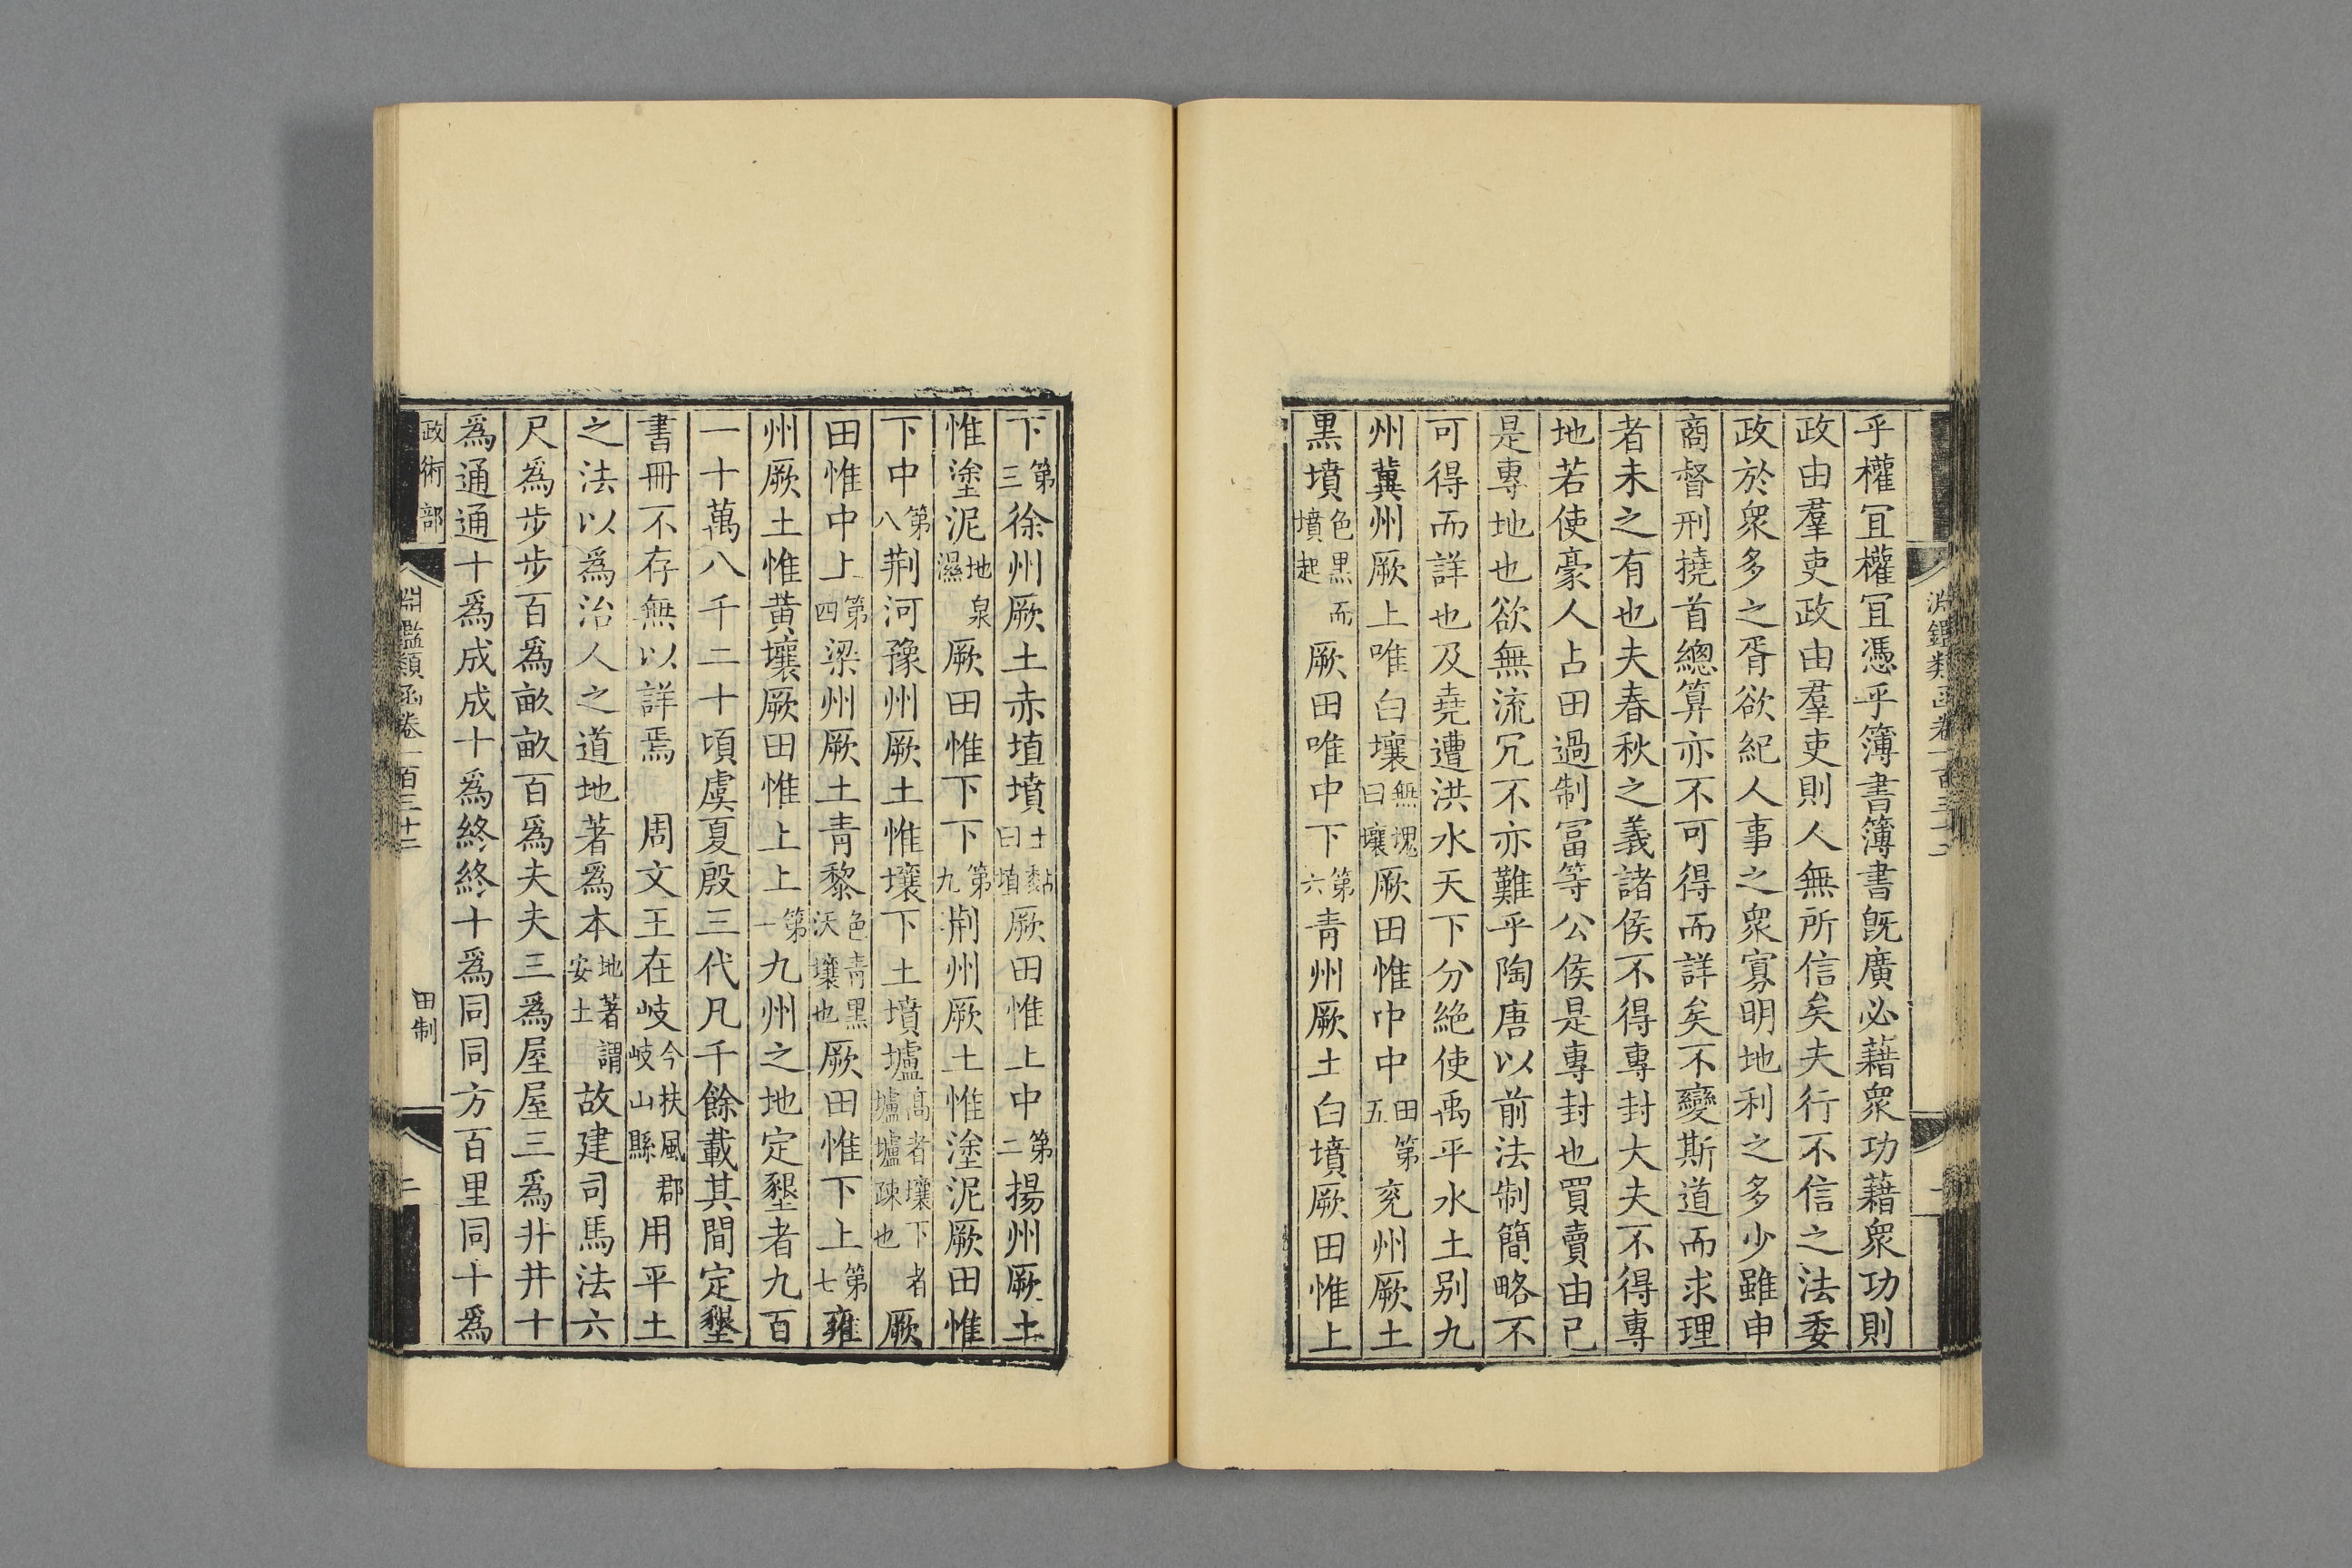 淵鑑類函卷一百三十二
乎權冝權冝憑乎簿書簿書旣廣必藉衆功藉衆功則
政由羣吏政由羣吏則人無所信矣夫行不信之法委
政於衆多之胥欲紀人事之衆寡明地利之多少雖申
商督刑撓首總算亦不可得而詳矣不變斯道而求理
者未之有也夫春秋之義諸侯不得專封大夫不得專
地若使豪人占田過制冨等公侯是專封也買賣由已
是專地也欲無流冗不亦難乎陶唐以前法制簡略不
可得而詳也及堯遭洪水天下分絶使禹平水土别九
州冀州厥上唯白壤無塊曰壤厥田惟中中田第五兖州厥土
黒墳色黒而墳起厥田唯中下第六青州厥土白墳厥田惟上
下第三徐州厥土赤埴墳土黏曰埴厥田惟上中第二揚州厥土
惟塗泥地泉濕厥田惟下下第九荆州厥土惟塗泥厥田惟
下中第八荆河豫州厥土惟壤下土墳壚高者壤下者壚壚疎也厥
田惟中上第四梁州厥土青黎色青黒沃壤也厥田惟下上第七雍
州厥土惟黄壤厥田惟上上第一九州之地定墾者九百
一十萬八千二十頃虞夏殷三代凡千餘載其間定墾
書冊不存無以詳焉　周文王在岐今扶風郡岐山縣用平土
之法以爲治人之道地著爲本地著謂安土故建司馬法六
尺爲步步百爲畝畝百爲夫夫三爲屋屋三爲井井十
爲通通十爲成成十爲終終十爲同同方百里同十爲
政術部
淵鑑類函卷一百三十二
田制
二